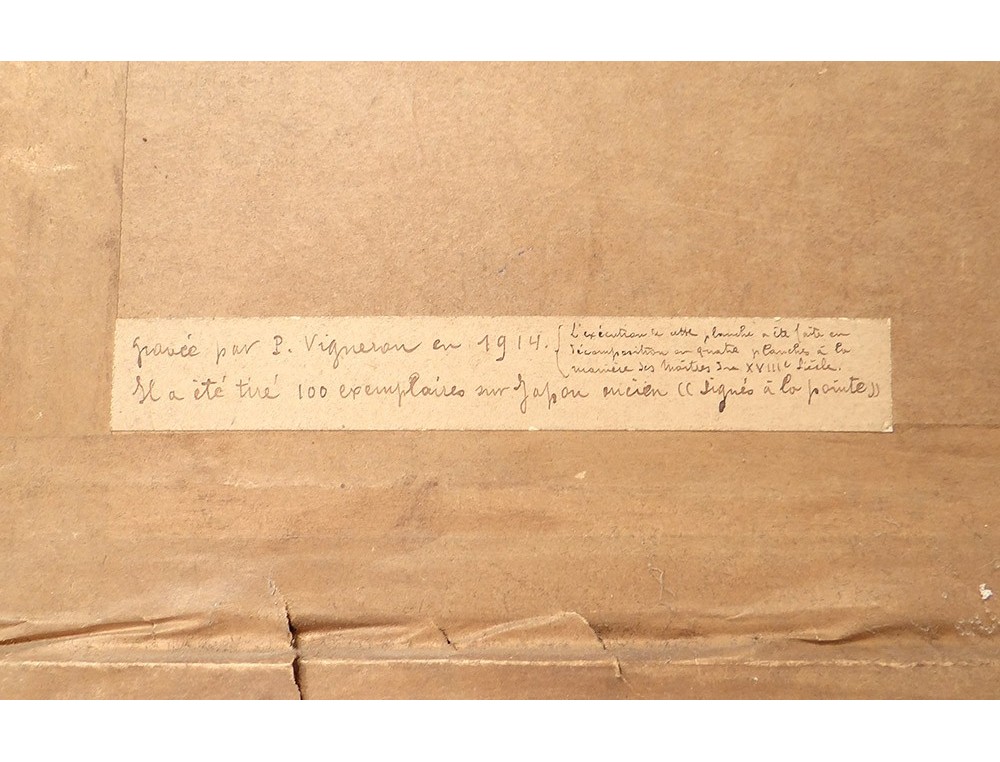 Gravée par P. Vigneron en 1914.
{ L'exécution de cette planche a été faite en
décomposition en quatre planches à la
manière des Maîtres du XVIIIe Siècle.
Il a été tiré 100 exemplaires sur Japon ancien (( signés à la pointe ))